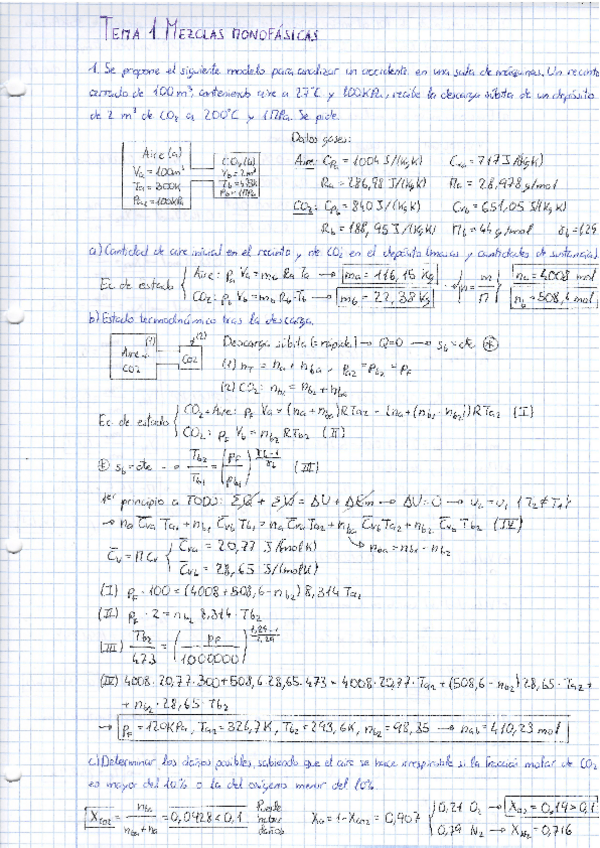 TEMA 1 MEZCLAS MONOFÁSICAS
1. Se propone el siguiente modelo para analizar un accidente en una sala de máquinas. Un recinto
cerrado de 100 m³, conteniendo aire a 27°C y 100KPa, recibe la descarga súbita de un depósito
de 2 m³ de CO₂ a 200°C y 1 MPa. Se pide.
Datos gases:
Aire (a)
Va = 100m³
Ta = 300K
Pa = 100KPa
CO₂ (b)
Vb = 2m³
Tb = 473K
Pb = 1MPa
Aire: Cpa = 1004 J/(kg K) Cva = 717 J/(kg K)
Ra = 286,98 J/(kg K) Ma = 28,978 g/mol
CO₂: Cpb = 840 J/(kg K) Cvb = 651,05 J/(kg K)
Rb = 188,95 J/(kg K) Mb = 44 g/mol γb = 1,29
a) Cantidad de aire inicial en el recinto y de CO₂ en el depósito (masas y cantidades de sustancia).
Ec. de estado
Aire: Pa Va = ma Ra Ta → ma = 116,15 Kg n = m/M na = 4008 mol
CO₂: Pb Vb = mb Rb Tb → mb = 22,38 Kg nb = 508,6 mol
b) Estado termodinámico tras la descarga.
(1) (2)
Aire + CO2 CO2
Descarga súbita (= rápida) → Q=0 → sb = cte ⊛
(1) nT = na + nba Pa2 = Pb2 = PF
(2) CO₂: nb1 = nb2 + nba
Ec. de estado
CO₂+Aire: PF Va = (na + nba) R Ta2 = (na + (nb1 - nb2)) R Ta2 (I)
CO₂: PF Vb = nb2 R Tb2 (II)
⊛ sb = cte → Tb2/Tb1 = (PF/Pb1)^((γb-1)/γb) (III)
1er principio a TODO: ΣQ + ΣW = ΔU + ΔEm → ΔU=0 → U2 = U1 (T2 ≠ T1)
→ na C̄va Ta1 + nb1 C̄vb Tb1 = na C̄va Ta2 + nba C̄vb Ta2 + nb2 C̄vb Tb2 (IV)
nba = nb1 - nb2
C̄v = M Cv
C̄va = 20,77 J/(mol K)
C̄vb = 28,65 J/(mol K)
(I) PF · 100 = (4008 + 508,6 - nb2) 8,314 Ta2
(II) PF · 2 = nb2 8,314 · Tb2
(III) Tb2/473 = (PF/1000000)^((1,29-1)/1,29)
(IV) 4008·20,77·300+508,6·28,65·473 = 4008·20,77·Ta2 + (508,6 - nb2) 28,65·Ta2 +
+ nb2 · 28,65 · Tb2
→ PF = 120KPa, Ta2 = 326,7K, Tb2 = 293,6K, nb2 = 98,35 → nab = 410,23 mol
c) Determinar los daños posibles, sabiendo que el aire se hace irrespirable si la fracción molar de CO₂
es mayor del 10% o la del oxígeno menor del 10%.
XCO2 = nba/(nba+na) = 0,0928 < 0,1 Puede haber daños Xa = 1 - XCO2 = 0,907
0,21 O₂ → XO2 = 0,19 > 0,1
0,79 N₂ → XN2 = 0,716